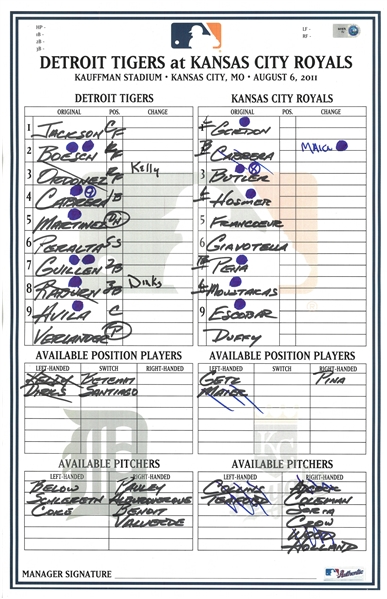 HP -
1B -
2B -
3B -
LF -
RF -
DETROIT TIGERS at KANSAS CITY ROYALS
KAUFFMAN STADIUM • KANSAS CITY, MO • AUGUST 6, 2011
DETROIT TIGERS KANSAS CITY ROYALS
ORIGINAL POS. CHANGE ORIGINAL POS. CHANGE
1 JACKSON CF L GORDON
2 BOESCH B CABRERA MAIER
3 ORDONEZ RF Kelly 3 BUTLER
4 CABRERA L HOSMER
5 MARTINEZ DH 5 FRANCOEUR
6 PERALTA SS 6 GIAVOTELLA
7 GUILLEN 2B PENA
8 RABURN 3B Dirks MOUSTAKAS
9 AVILA C 9 ESCOBAR
VERLANDER P DUFFY
AVAILABLE POSITION PLAYERS AVAILABLE POSITION PLAYERS
LEFT-HANDED SWITCH RIGHT-HANDED LEFT-HANDED SWITCH RIGHT-HANDED
KELLY BETEMIT GETZ PINA
DIRKS SANTIAGO MAIER
AVAILABLE PITCHERS AVAILABLE PITCHERS
LEFT-HANDED RIGHT-HANDED LEFT-HANDED RIGHT-HANDED
BELOW PAULEY COLLINS
SCHLERETH ALBUQUERQUE TEAFORD COLEMAN
COKE BENOIT SORIA
VALVERDE CROW
WOOD
HOLLAND
MANAGER SIGNATURE
Authentic